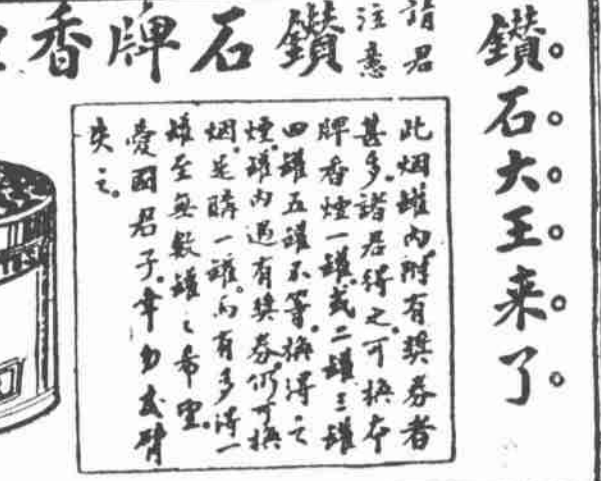 鑽石大王来了
請君
注意
鑽石牌香
此烟罐内附有奬券者
甚多諸君得之可換本
牌香煙一罐或二罐三罐
四罐五罐不等換得之
煙罐内遇有奬券仍可換
烟是購一罐而有多得一
罐至無数罐之希望
愛国君子幸勿交臂
失之